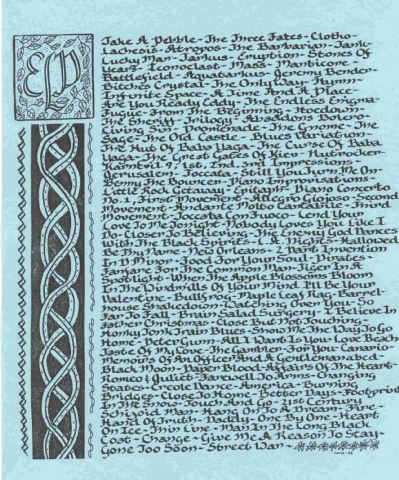 ELP
Take A Pebble - The Three Fates - Clotho -
Lachesis - Atropos - The Barbarian - Tank -
Lucky Man - Tarkus - Eruption - Stones Of
Years - Iconoclast - Mass - Manticore -
Battlefield - Aquatarkus - Jeremy Bender -
Bitches Crystal - The Only Way - Hymn -
Infinite Space - A Time And A Place -
Are You Ready Eddy - The Endless Enigma -
Fugue - From The Beginning - Hoedown -
The Sheriff - Trilogy - Abaddons Bolero -
Living Sin - Promenade - The Gnome - The
Sage - The Old Castle - Blues Variation -
The Hut Of Baba Yaga - The Curse Of Baba
Yaga - The Great Gates Of Kiev - Nutrocker -
Karn Evil 9, 1st, 2nd, 3rd Impressions -
Jerusalem - Toccata - Still You Turn Me On -
Benny The Bouncer - Piano Improvisations -
Little Rock Getaway - Epitaph - Piano Concerto
No. 1, First Movement - Allegro Giojoso - Second
Movement - Andante Molto Cantabile - Third
Movement - Toccata Con Fuoco - Lend Your
Love To Me Tonight - Nobody Loves You Like I
Do - Closer To Believing - The Enemy God Dances
With The Black Spirits - L.A. Nights - Hallowed
Be Thy Name - New Orleans - 2 Part Invention
In D Minor - Food For Your Soul - Pirates -
Fanfare For The Common Man - Tiger In A
Spotlight - When The Apple Blossoms Bloom
In The Windmills Of Your Mind I'll Be Your
Valentine - Bullfrog - Maple Leaf Rag - Barrel-
house Shakedown - Watching Over You - So
Far To Fall - Brain Salad Surgery - I Believe In
Father Christmas - Close But Not Touching -
Honky Tonk Train Blues - Show Me The Way To Go
Home - Peter Gunn - All I Want Is You - Love Beach
Taste Of My Love - The Gambler - For You - Canario -
Memoirs Of An Officer And A Gentleman a b c d -
Black Moon - Paper Blood - Affairs Of The Heart -
Romeo & Juliet - Farewell To Arms - Changing
States - Creole Dance - America - Burning
Bridges - Close To Home - Better Days - Footprints
In The Snow - Touch And Go - 21st Century
Schizoid Man - Hang On To A Dream - Fire -
Hand Of Truth - Daddy - One By One - Heart
On Ice - Thin Line - Man In The Long Black
Coat - Change - Give Me A Reason To Stay -
Gone Too Soon - Street War -